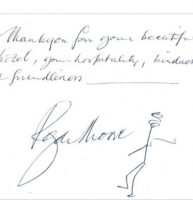 Thankyou for your beautif
hotel, your hospitality, kindness
friendliness
Roger Moore